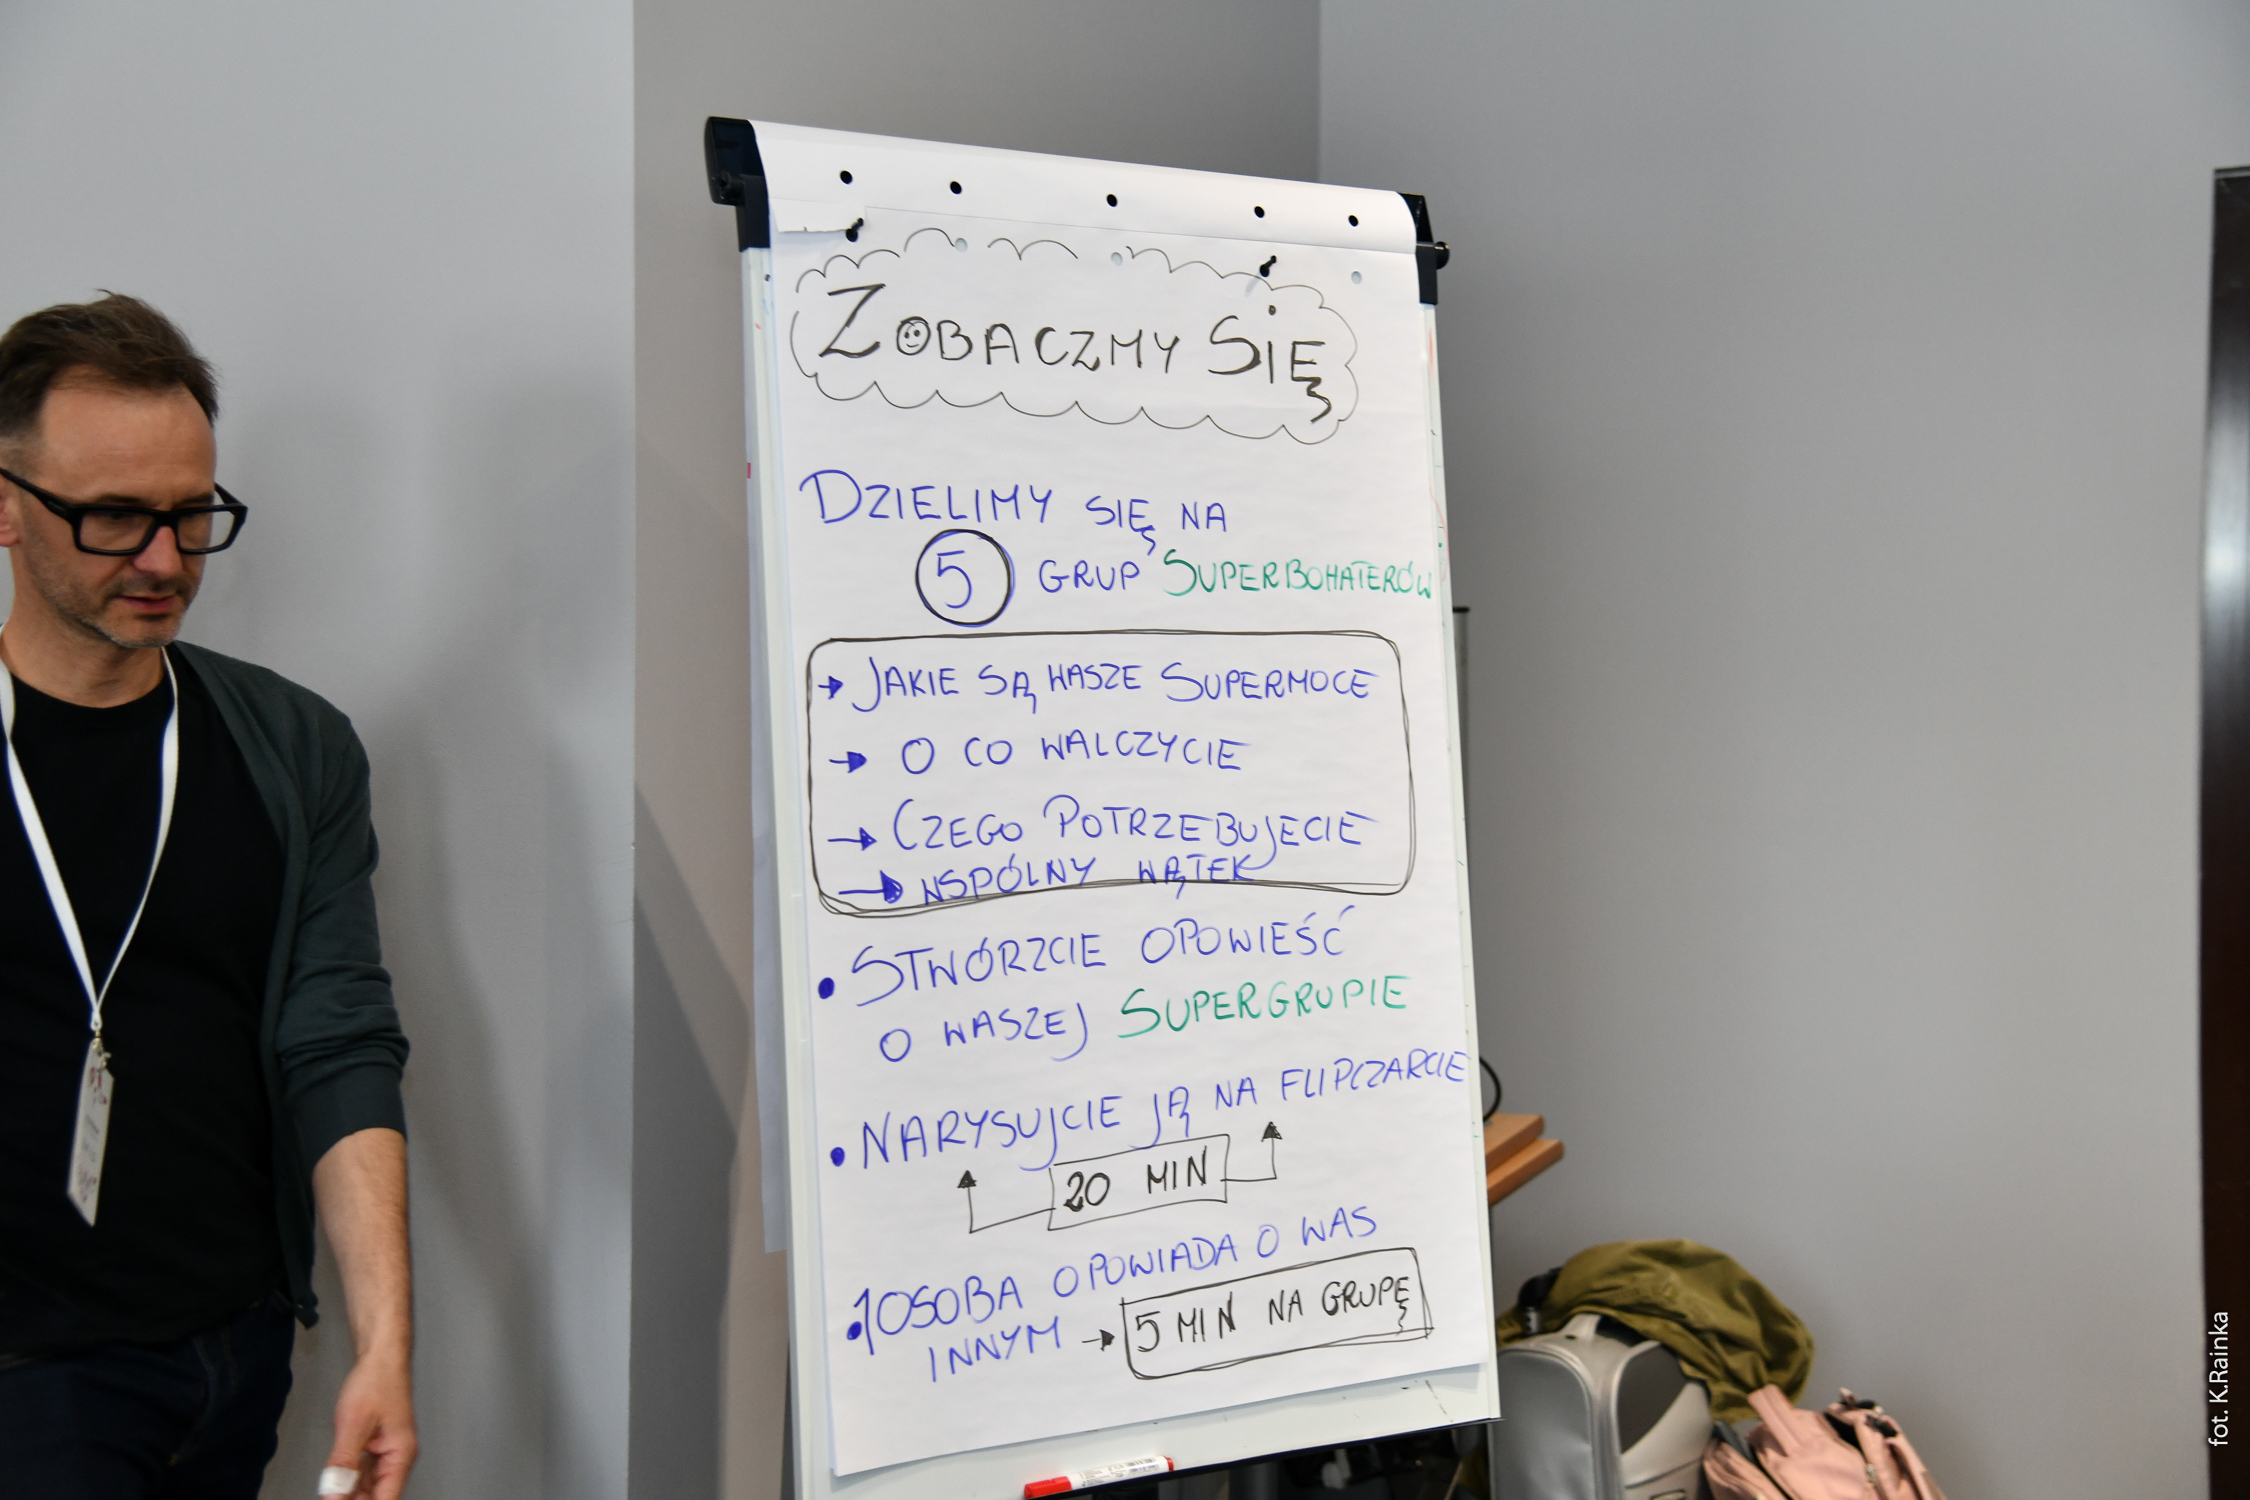 ZOBACZMY SIĘ
DZIELIMY SIĘ NA
5 GRUP SUPERBOHATERÓW
→ JAKIE SĄ WASZE SUPERMOCE
→ O CO WALCZYCIE
→ CZEGO POTRZEBUJECIE
→ WSPÓLNY WĄTEK
• STWÓRZCIE OPOWIEŚĆ
O WASZEJ SUPERGRUPIE
• NARYSUJCIE JĄ NA FLIPCZARCIE
20 MIN
• 1 OSOBA OPOWIADA O WAS
INNYM → 5 MIN NA GRUPĘ
fot. K.Rainka